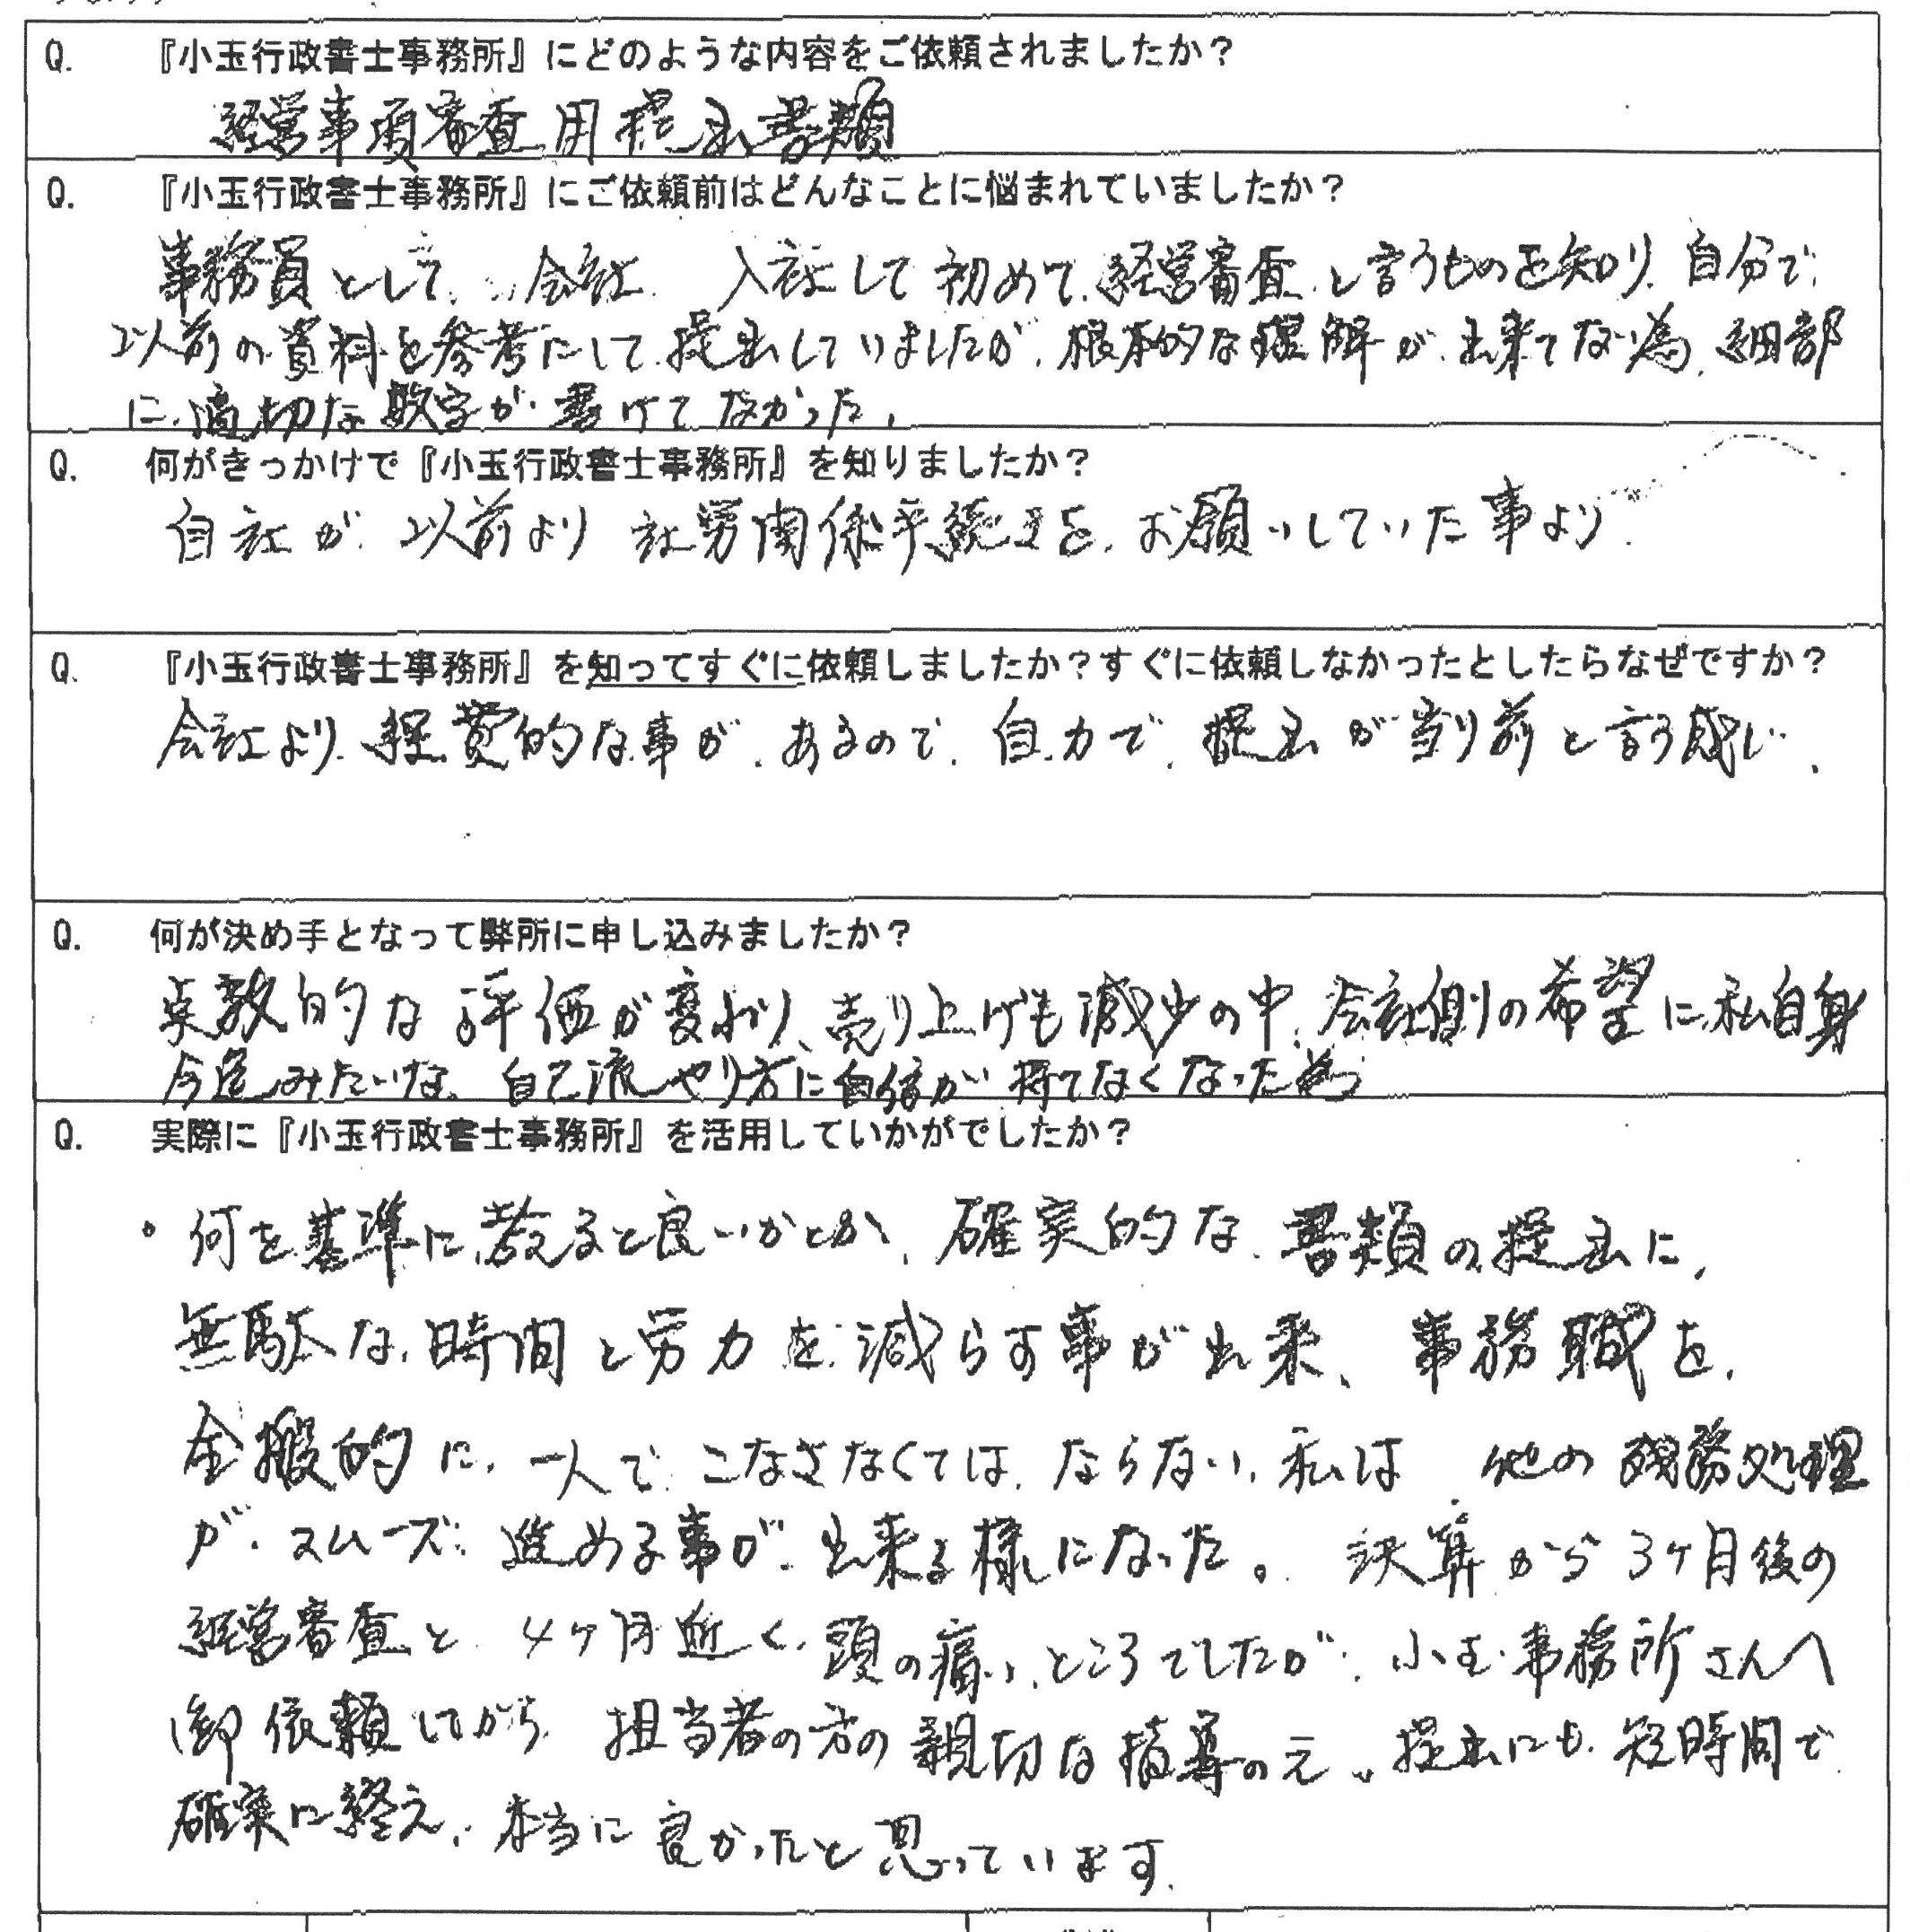 Q. 『小玉行政書士事務所』にどのような内容をご依頼されましたか？
経営事項審査用提出書類
Q. 『小玉行政書士事務所』にご依頼前はどんなことに悩まれていましたか？
事務員として、会社 入社して初めて、経営審査と言うものを知り、自分で、
以前の資料を参考にして提出していましたが、根本的な理解が出来てない為、細部
に、適切な数字が書けてなかった。
Q. 何がきっかけで『小玉行政書士事務所』を知りましたか？
自社が、以前より社労関係手続きを、お願いしていた事より
Q. 『小玉行政書士事務所』を知ってすぐに依頼しましたか？すぐに依頼しなかったとしたらなぜですか？
会社より、経費的な事が、あるので、自力で、提出が当り前と言う感じ、
Q. 何が決め手となって弊所に申し込みましたか？
点数的な評価が変わり、売り上げも減少の中、会社側の希望に、私自身
今迄みたいな、自己流やり方に自信が持てなくなった為
Q. 実際に『小玉行政書士事務所』を活用していかがでしたか？
・何を基準に、教ると良いかとか、確実的な書類の提出に、
無駄な時間と労力を減らす事が出来、事務職を、
全搬的に、一人でこなさなくては、ならない、私は 他の残務処理
が、スムーズ 進める事が、出来る様になった。決算から3ケ月後の
経営審査と 4ケ月近く、頭の痛い、ところでしたが、小玉事務所さんへ
御依頼してから、担当者の方の親切な指導の元、提出にも、短時間で
確実に終え、本当に良かったと思っています。